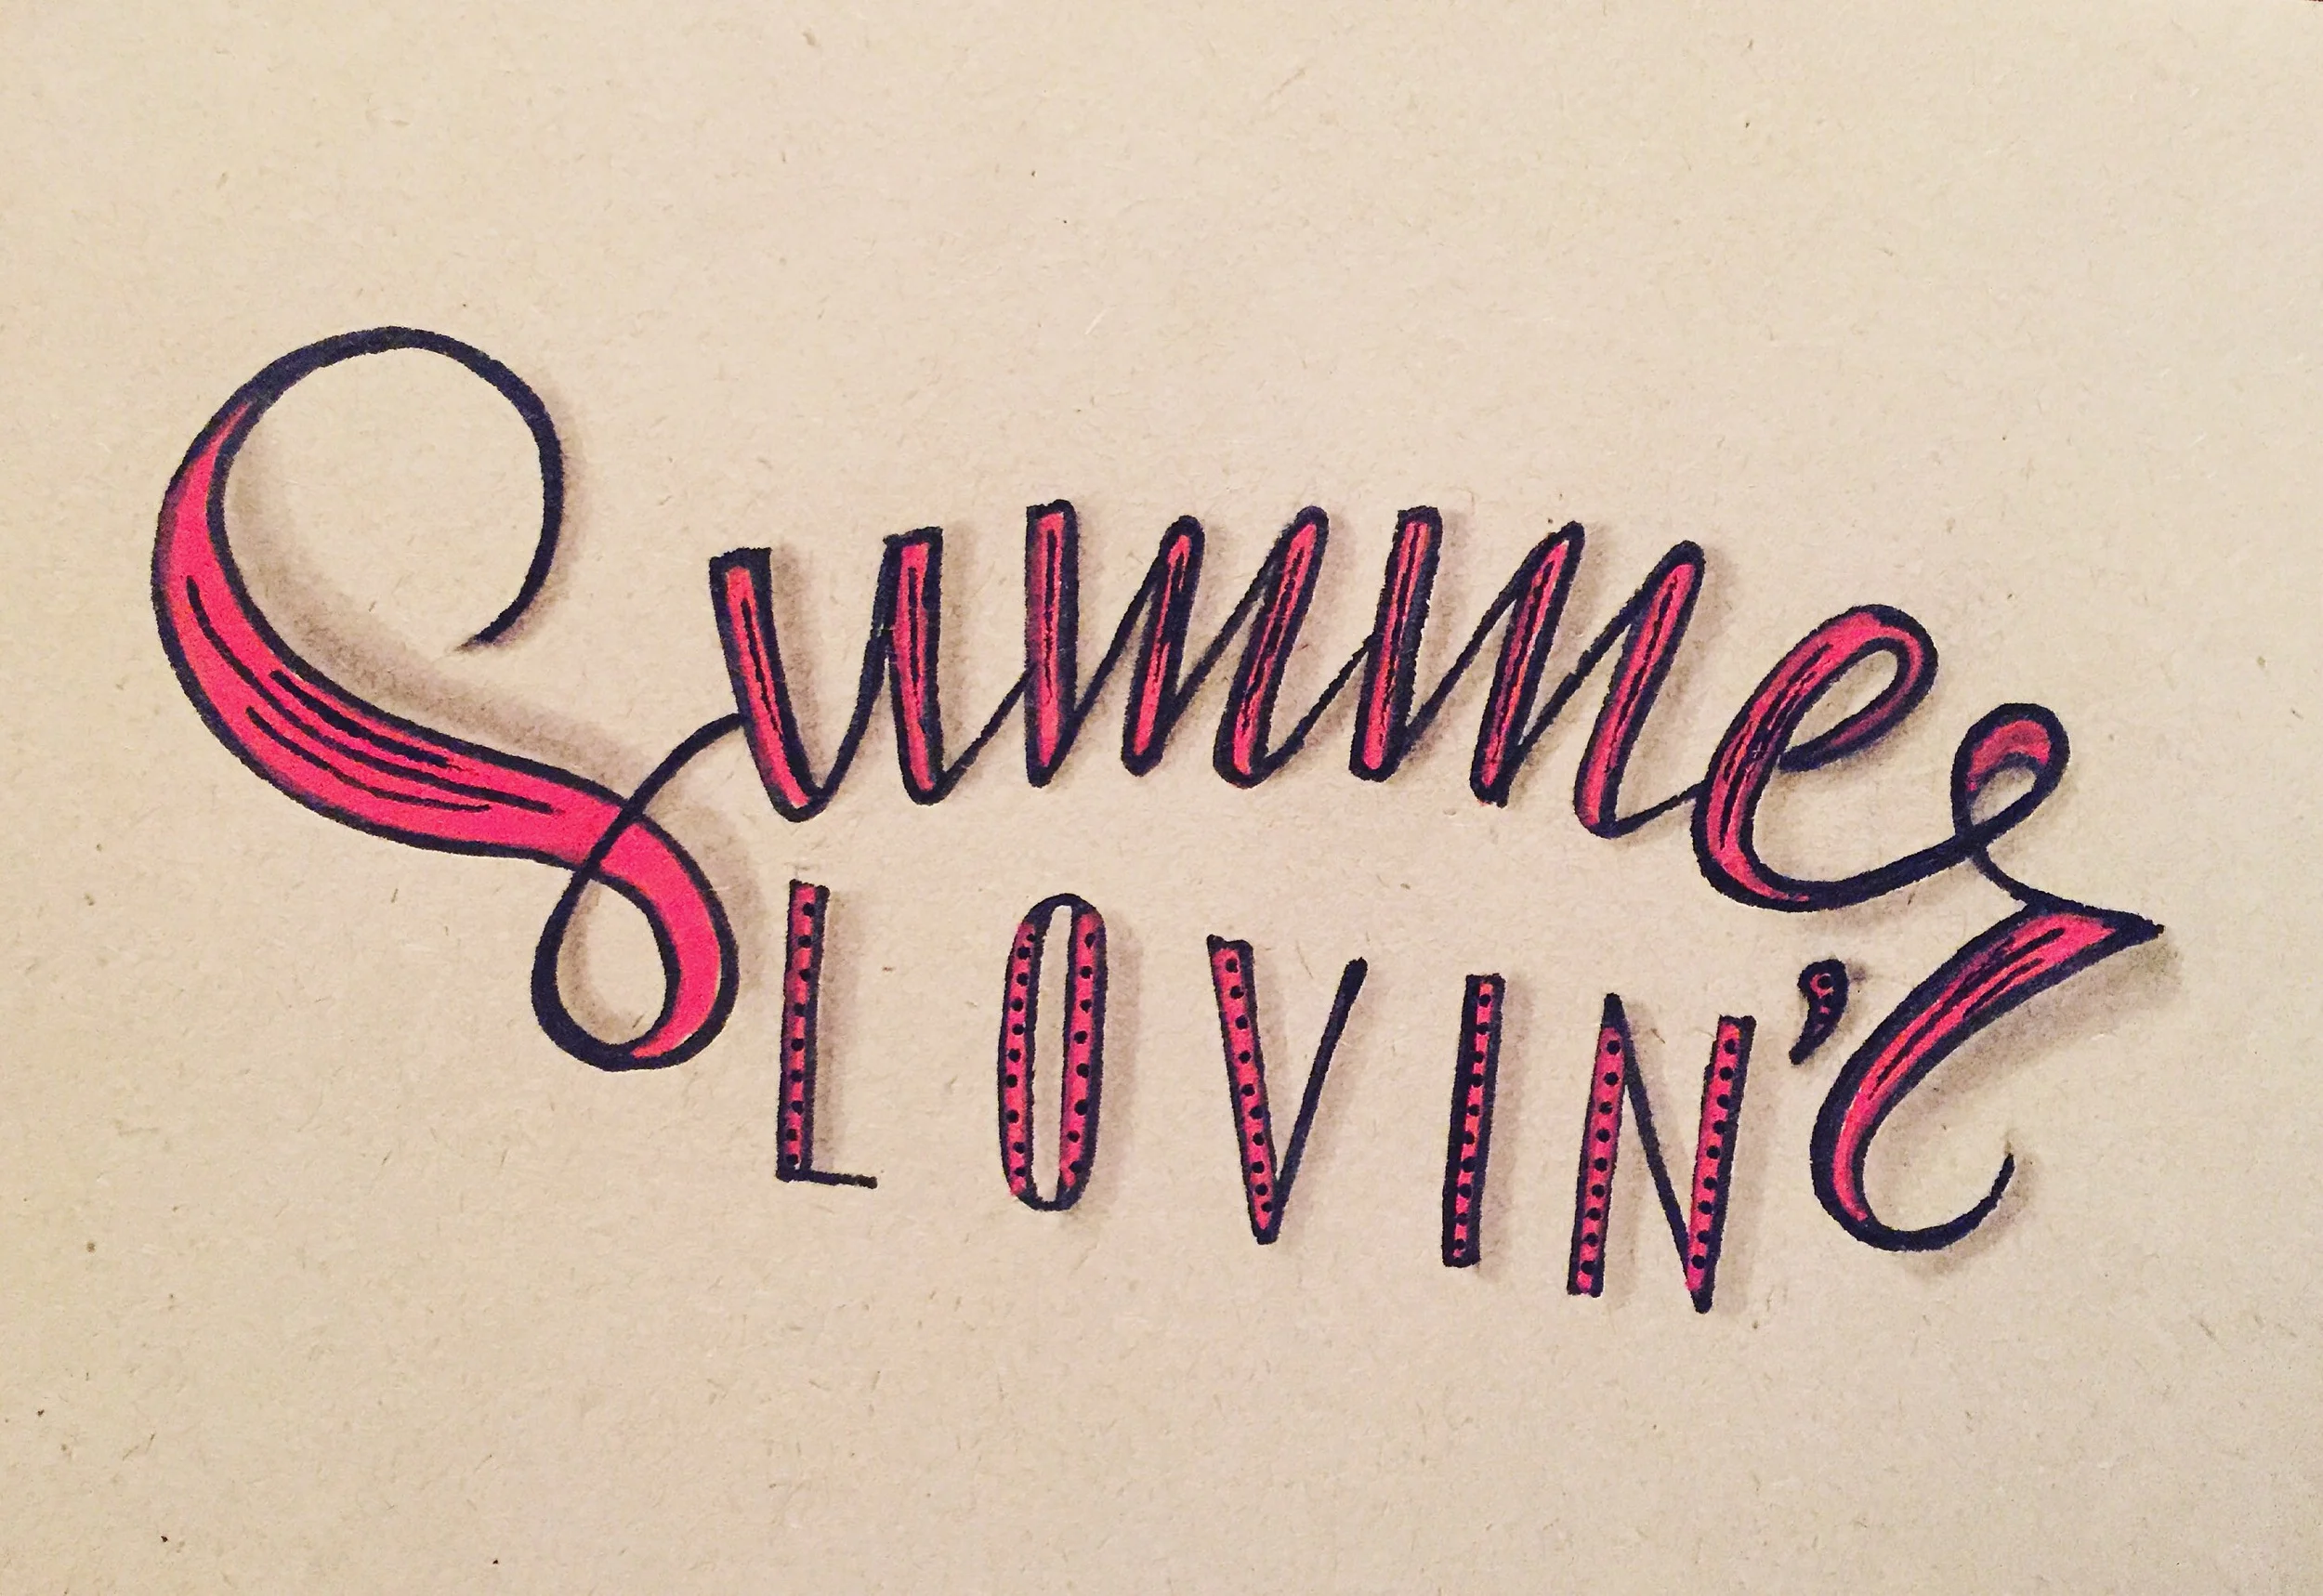 Summer
LOVIN'